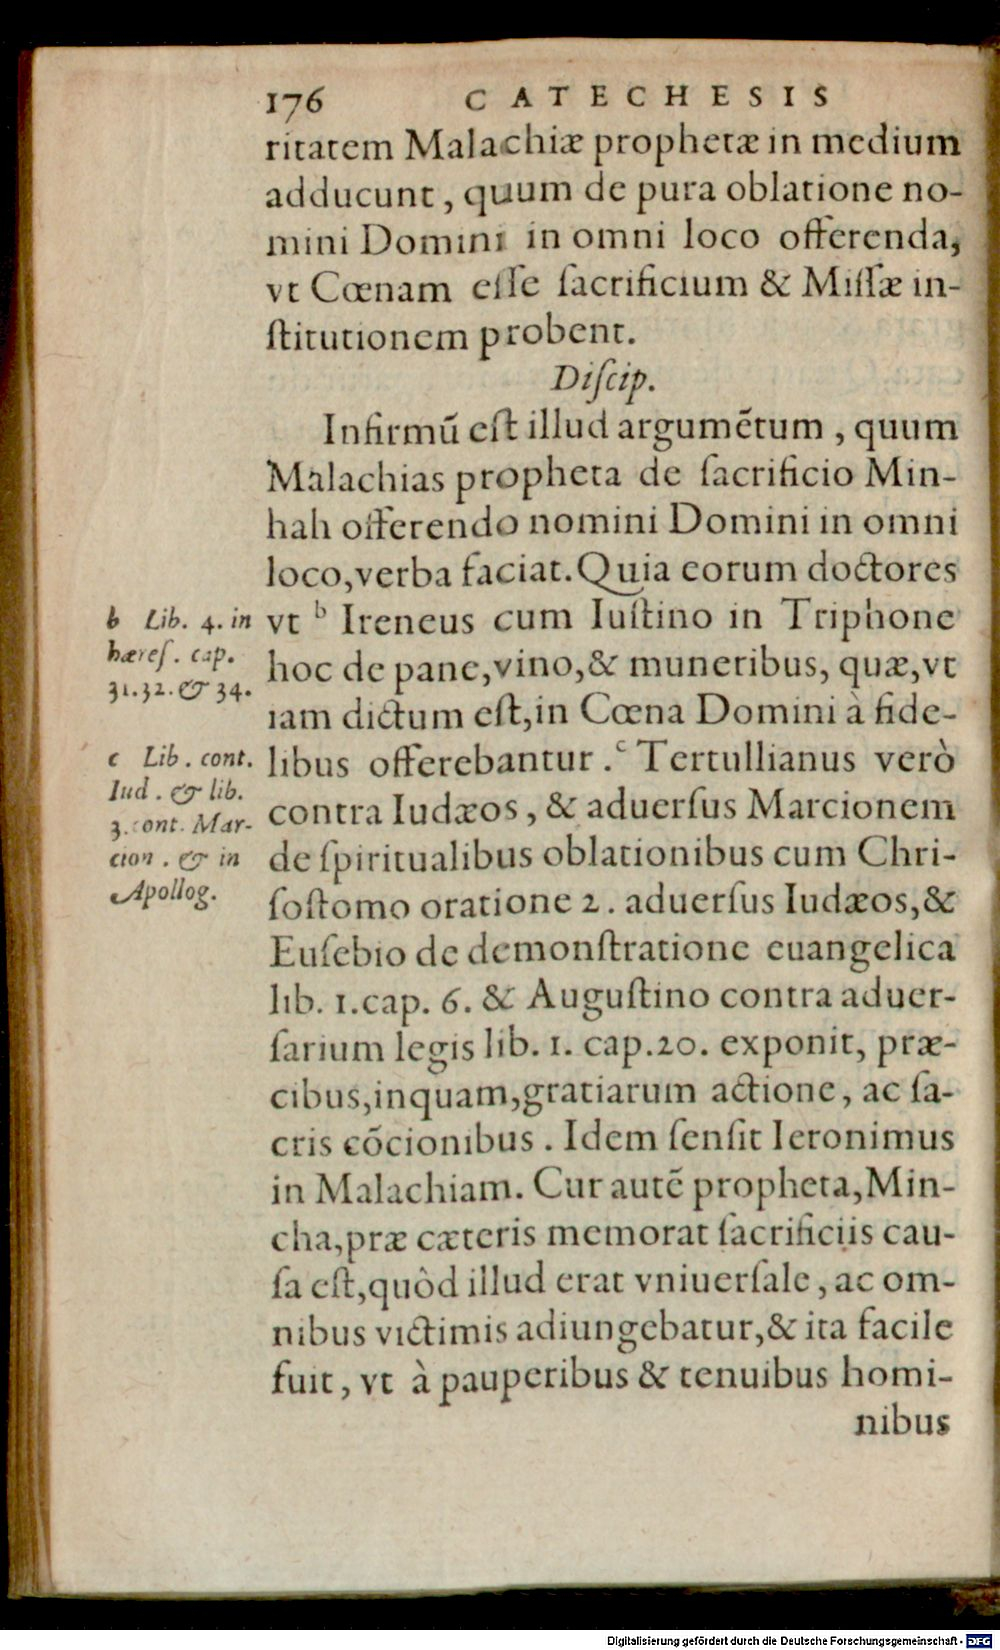 176 CATECHESIS
ritatem Malachiæ prophetæ in medium
adducunt, quum de pura oblatione no-
mini Domini in omni loco offerenda,
vt Cœnam eſſe ſacrificium & Miſſæ in-
ſtitutionem probent.
Diſcip.
Infirmũ eſt illud argumẽtum, quum
Malachias propheta de ſacrificio Min-
hah offerendo nomini Domini in omni
loco, verba faciat. Quia eorum doctores
vt b Ireneus cum Iuſtino in Triphone
hoc de pane, vino, & muneribus, quæ, vt
iam dictum eſt, in Cœna Domini à fide-
libus offerebantur. c Tertullianus verò
contra Iudæos, & aduerſus Marcionem
de ſpiritualibus oblationibus cum Chri-
ſoſtomo oratione 2. aduerſus Iudæos, &
Euſebio de demonſtratione euangelica
lib. 1. cap. 6. & Auguſtino contra aduer-
ſarium legis lib. 1. cap. 20. exponit, præ-
cibus, inquam, gratiarum actione, ac ſa-
cris cõcionibus. Idem ſenſit Ieronimus
in Malachiam. Cur autẽ propheta, Min-
cha, præ cæteris memorat ſacrificiis cau-
ſa eſt, quòd illud erat vniuerſale, ac om-
nibus victimis adiungebatur, & ita facile
fuit, vt à pauperibus & tenuibus homi-
nibus
b Lib. 4. in
hæreſ. cap.
31. 32. & 34.
c Lib. cont.
Iud. & lib.
3. cont. Mar-
cion. & in
Apollog.
Digitalisierung gefördert durch die Deutsche Forschungsgemeinschaft - DFG